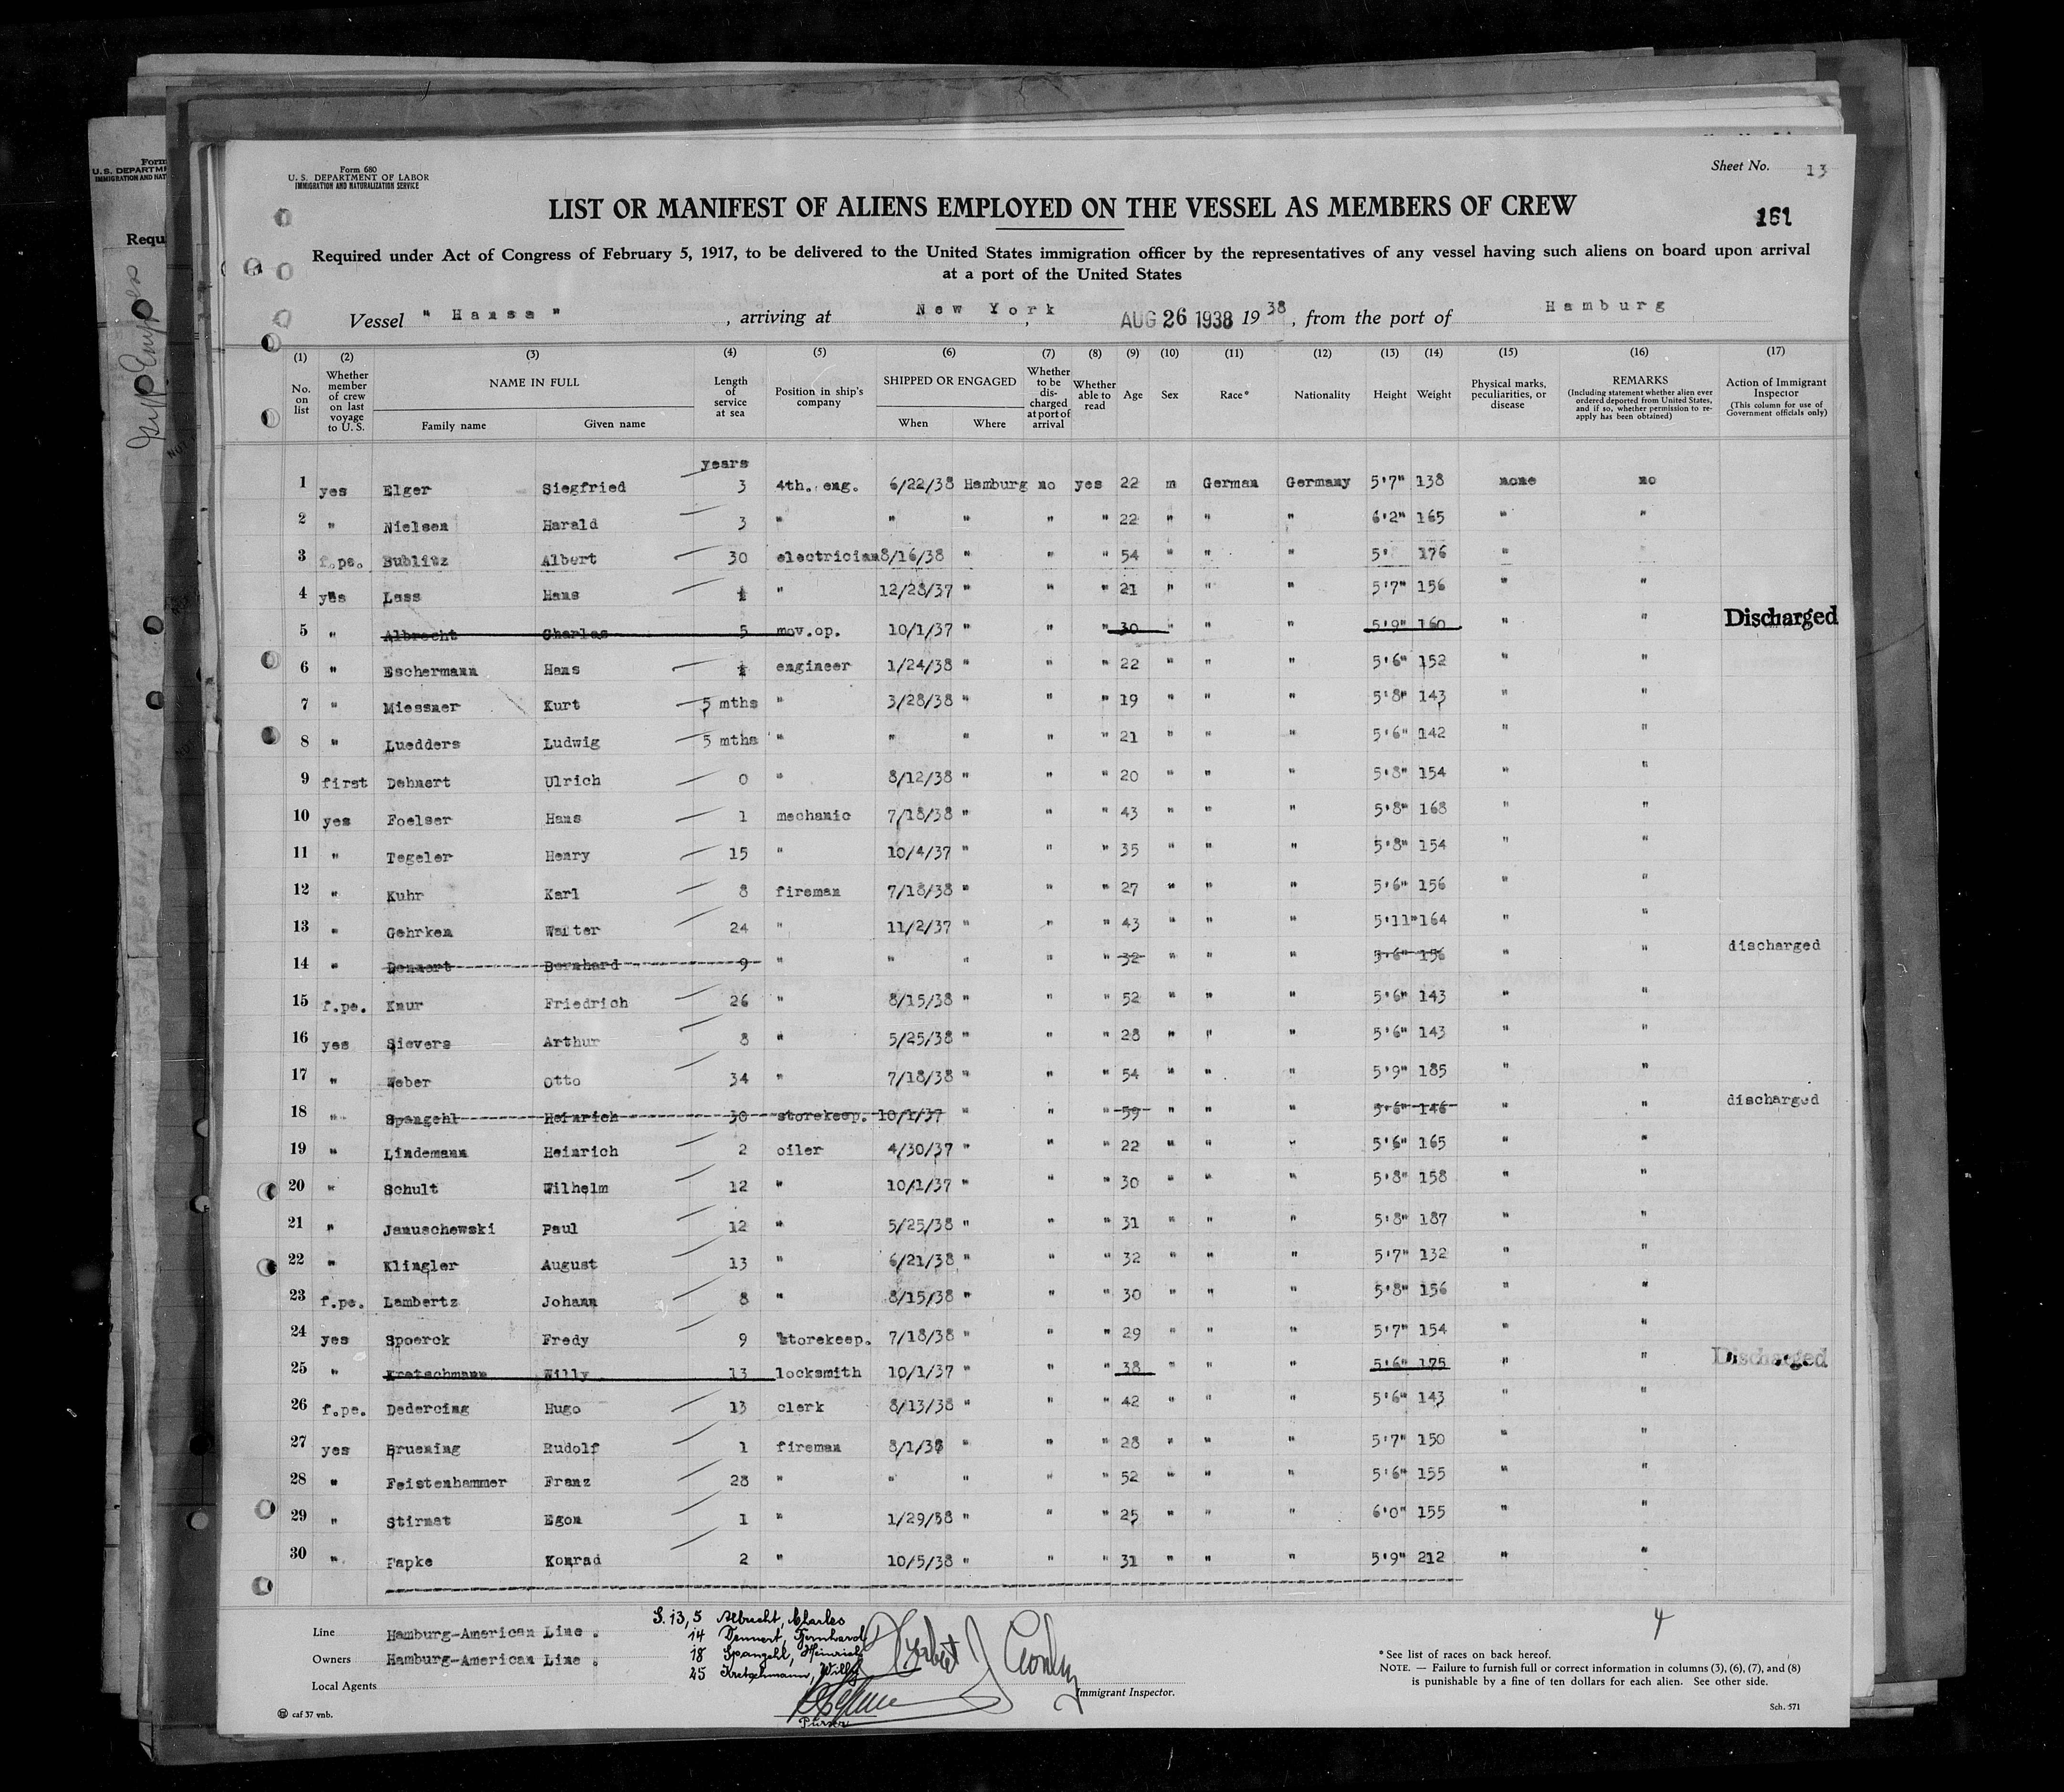 Form 680
U. S. DEPARTMENT OF LABOR
IMMIGRATION AND NATURALIZATION SERVICE
Sheet No. 13
LIST OR MANIFEST OF ALIENS EMPLOYED ON THE VESSEL AS MEMBERS OF CREW
161
Required under Act of Congress of February 5, 1917, to be delivered to the United States immigration officer by the representatives of any vessel having such aliens on board upon arrival
at a port of the United States
Vessel " Hansa ", arriving at New York, AUG 26 1938 19 38, from the port of Hamburg
(1) (2) (3) (4) (5) (6) (7) (8) (9) (10) (11) (12) (13) (14) (15) (16) (17)
No. on list
Whether member of crew on last voyage to U. S.
NAME IN FULL
Family name
Given name
Length of service at sea
Position in ship's company
SHIPPED OR ENGAGED
When
Where
Whether to be discharged at port of arrival
Whether able to read
Age
Sex
Race*
Nationality
Height
Weight
Physical marks, peculiarities, or disease
REMARKS
(Including statement whether alien ever ordered deported from United States, and if so, whether permission to reapply has been obtained)
Action of Immigrant Inspector
(This column for use of Government officials only)
years
1 yes Elger Siegfried 3 4th. eng. 6/22/38 Hamburg no yes 22 m German Germany 5'7" 138 none no
2 " Nielsen Harald 3 " " " " " 22 " " " 6'2" 165 " "
3 f.pe. Bublitz Albert 30 electrician 8/16/38 " " " 54 " " " 5' 176 "
4 yes Lass Hans " 12/28/37 " " " 21 " " " 5'7" 156 " "
5 " Albrecht Charles 5 mov.op. 10/1/37 " " " 30 " " " 5'9" 160 " " Discharged
6 " Eschermann Hans engineer 1/24/38 " " " 22 " " " 5'6" 152 " "
7 " Miessner Kurt 5 mths " 3/28/38 " " " 19 " " " 5'8" 143 " "
8 " Luedders Ludwig 5 mths " " " " " 21 " " " 5'6" 142 " "
9 first Dehnert Ulrich 0 " 8/12/38 " " " 20 " " " 5'8" 154 " "
10 yes Foelser Hans 1 mechanic 7/18/38 " " " 43 " " " 5'8" 168 " "
11 " Tegeler Henry 15 " 10/4/37 " " " 35 " " " 5'8" 154 " "
12 " Kuhr Karl 8 fireman 7/18/38 " " " 27 " " " 5'6" 156 " "
13 " Gehrken Walter 24 " 11/2/37 " " " 43 " " " 5'11" 164 " "
14 " Dennert Bernhard 9 " " " " " 32 " " " 5'6" 156 " " discharged
15 f.pe. Knur Friedrich 26 " 8/15/38 " " " 52 " " " 5'6" 143 " "
16 yes Sievers Arthur 8 " 5/25/38 " " " 28 " " " 5'6" 143 " "
17 " Weber Otto 34 " 7/18/38 " " " 54 " " " 5'9" 185 " "
18 " Spangehl Heinrich 30 storekeep. 10/1/37 " " " 59 " " " 5'6" 146 " " discharged
19 " Lindemann Heinrich 2 oiler 4/30/37 " " " 22 " " " 5'6" 165 " "
20 " Schult Wilhelm 12 " 10/1/37 " " " 30 " " " 5'8" 158 " "
21 " Januschewski Paul 12 " 5/25/38 " " " 31 " " " 5'8" 187 " "
22 " Klingler August 13 " 6/21/38 " " " 32 " " " 5'7" 132 " "
23 f.pe. Lambertz Johann 8 " 8/15/38 " " " 30 " " " 5'8" 156 " "
24 yes Spoerck Fredy 9 storekeep. 7/18/38 " " " 29 " " " 5'7" 154 " "
25 " Kretschmann Willy 13 locksmith 10/1/37 " " " 38 " " " 5'6" 175 " " Discharged
26 f.pe. Dedercing Hugo 13 clerk 8/13/38 " " " 42 " " " 5'6" 143 " "
27 yes Bruening Rudolf 1 fireman 8/1/38 " " " 28 " " " 5'7" 150 " "
28 " Feistenhammer Franz 28 " " " " " 52 " " " 5'6" 155 " "
29 " Stirnat Egon 1 " 1/29/38 " " " 25 " " " 6'0" 155 " "
30 " Papke Konrad 2 " 10/5/38 " " " 31 " " " 5'9" 212 " "
Line Hamburg-American Line .
Owners Hamburg-American Line .
Local Agents
S. 13, 5 Albrecht, Charles
14 Dennert, Bernhard
18 Spangehl, Heinrich
25 Kretschmann, Willy
Purser
Immigrant Inspector.
4
* See list of races on back hereof.
NOTE. — Failure to furnish full or correct information in columns (3), (6), (7), and (8)
is punishable by a fine of ten dollars for each alien. See other side.
caf 37 vnb.
Sch. 571